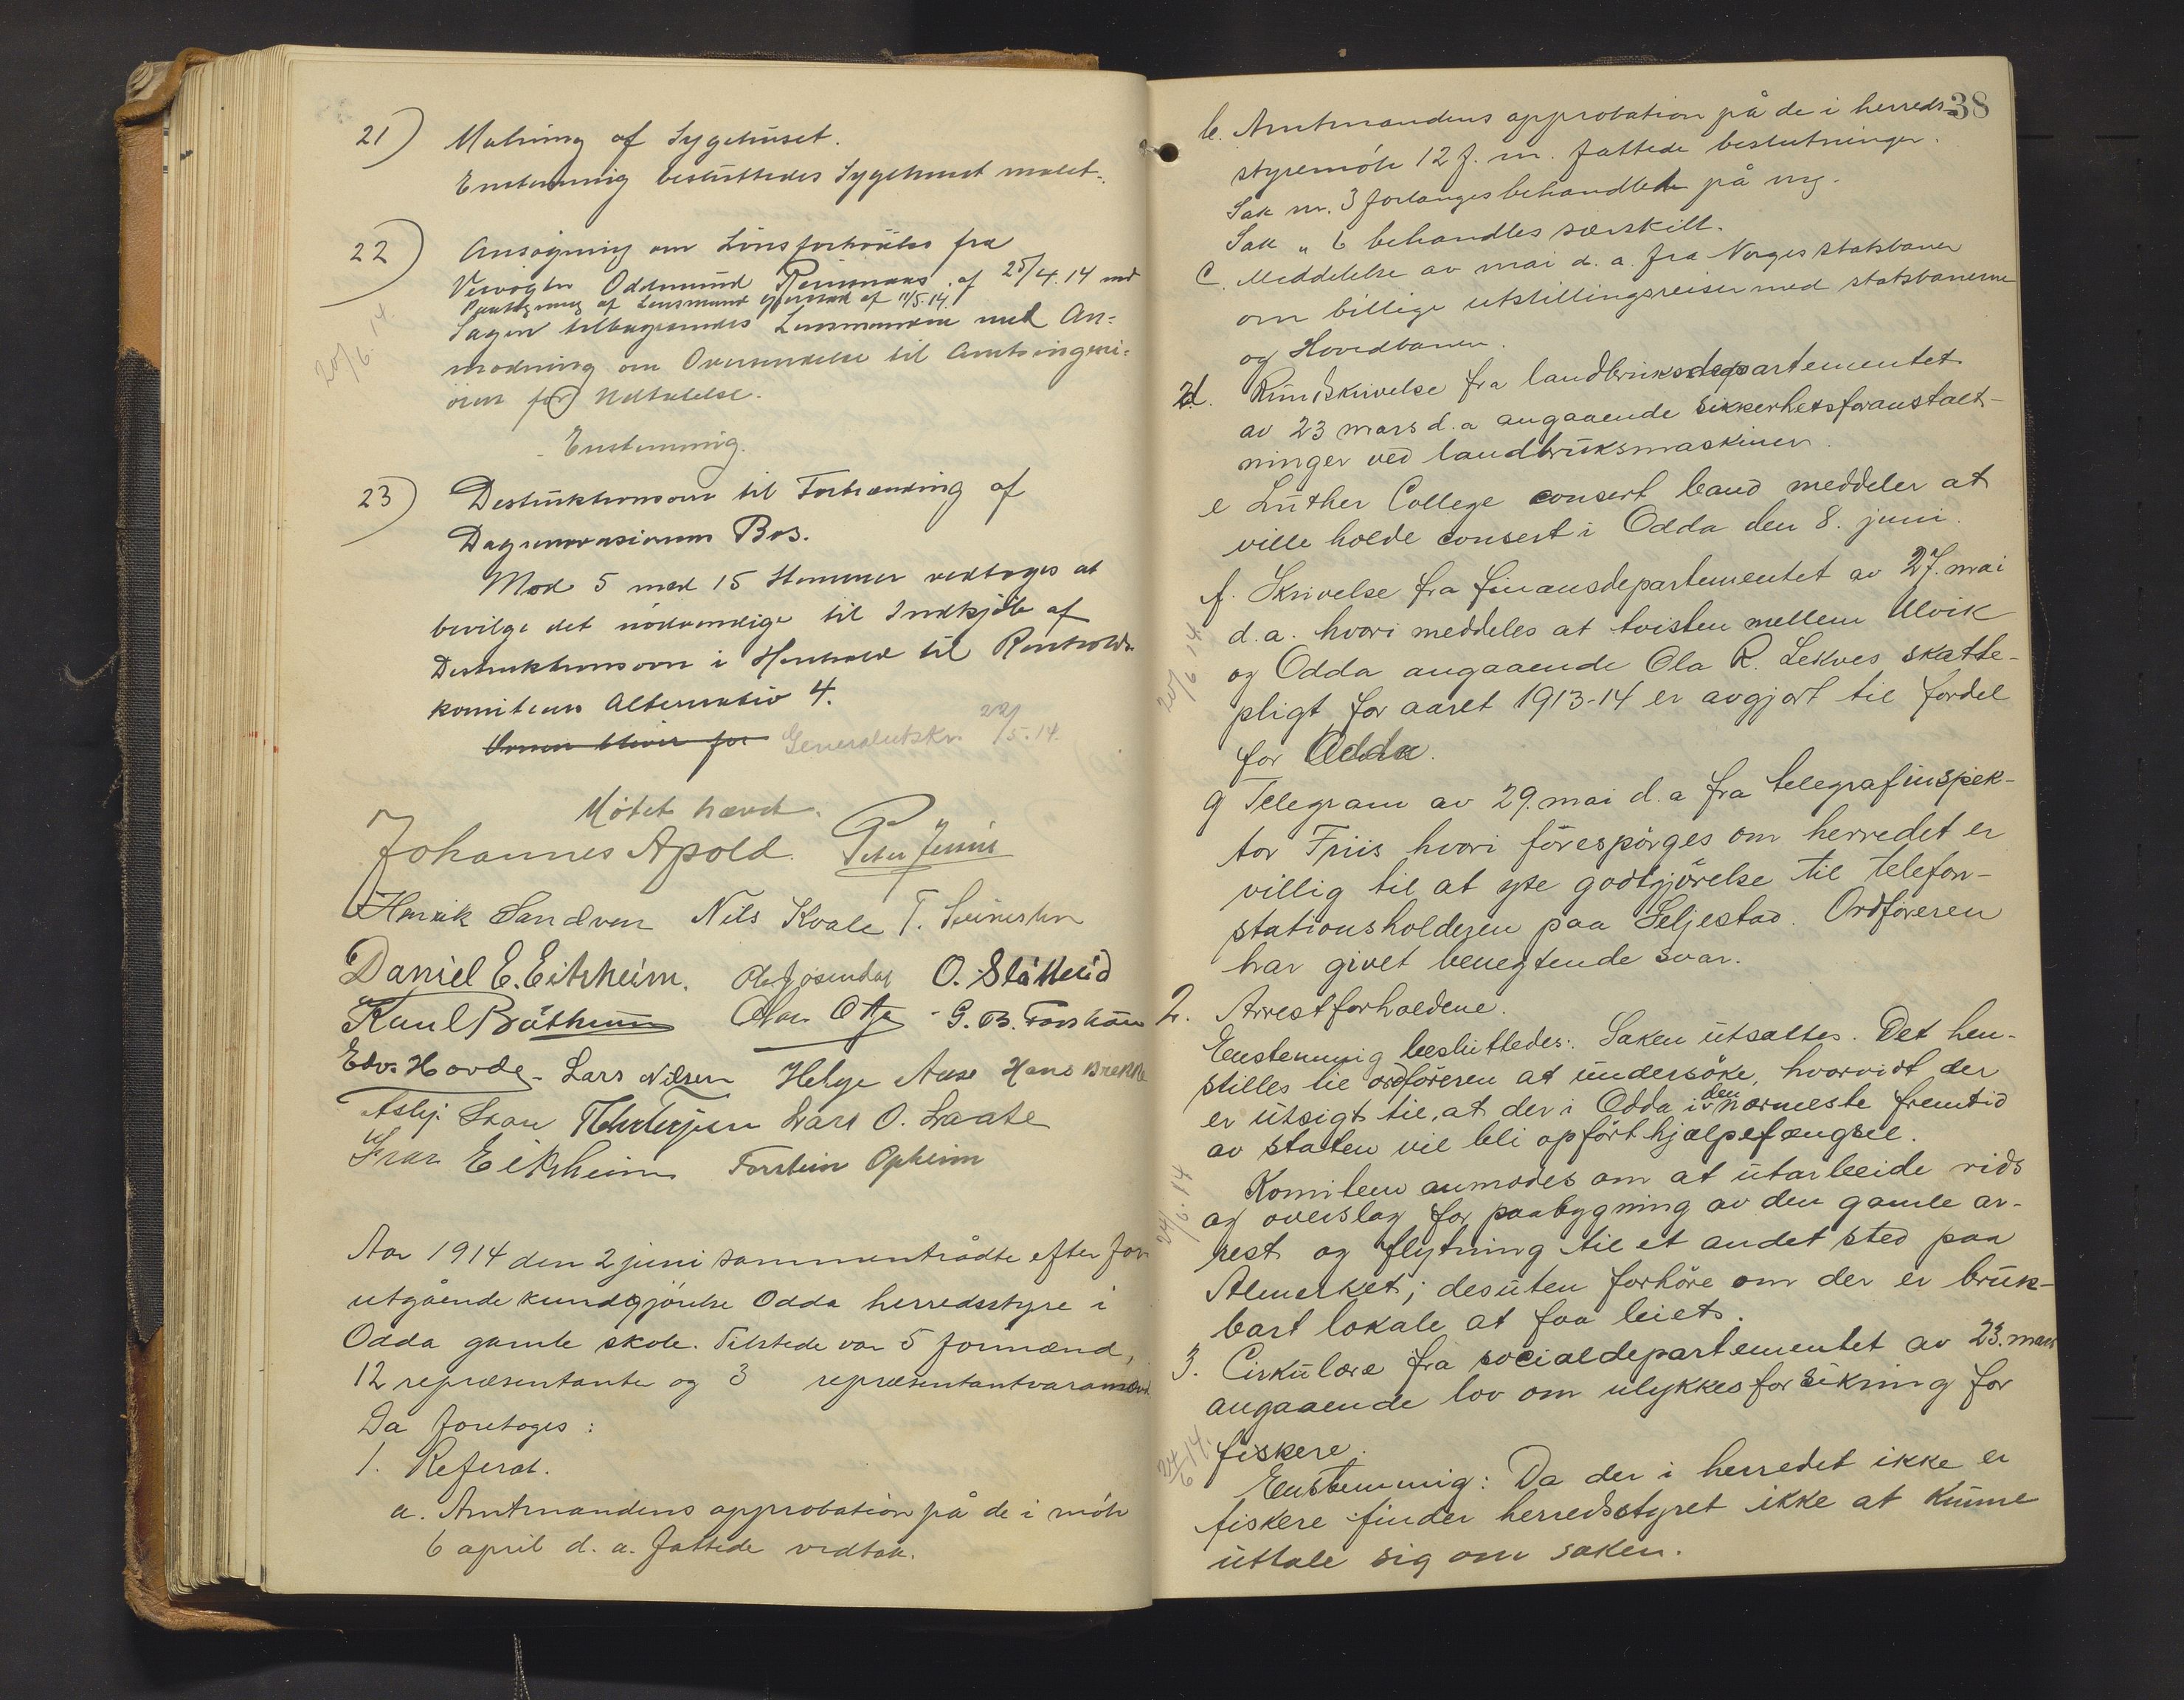 21) Malning af Sygehuset.
Enstemmig besluttedes Sygehuset malet.
22) Ansögning om Lönsforhöielse fra
Veivogter Oddmund af 25/4.14 med
Paategning af Lensmand af 11/5.14.
Sagen tilbagesendes Lensmanden med An-
modning om Oversendelse til Amtsingeni-
ören for Udtalelse.
20/6.14.
Enstemmig.
23) Destruktionsovn til Forbrænding af
Dagrenovasionen Bos.
Mod 5 mod 15 Stemmer vedtoges at
bevilge det nödvendige til Indkjöb af
Destruktionsovn i Henhold til Renholds
komiteens Alternativ 4.
Generalutskr. 22/5.14.
Mötet hævet.
Johannes Apold. Peter
Henrik Sandven Nils Kvale T.
Daniel E. Eitrheim. O. Slåttelid
Olav G. B.
Edv. Hovde. Lars Nilsen Helge Aase Hans Brekke
Lars O. Laate
Eitrheim Torstein Opheim
Aar 1914 den 2 juni sammentrådte efter for
utgående kundgjörelse Odda herredsstyre i
Odda gamle skole. Tilstede var 5 formænd,
12 repræsentanter og 3 repræsentantvaramænd
Da foretoges:
1. Referat.
a. Amtmandens approbation på de i möte
6 april d. a. fattede vedtak.
38
b. Amtmandens approbation på de i herreds-
styremöte 12 f. m. fattede beslutninger.
Sak nr. 3 forlanges behandlet på ny.
Sak " 6 behandles særskilt.
c. Meddelelse av mai d. a. fra Norges statsbaner
om billige utstillingsreiser med statsbanerne
og Hovedbanen.
d. Rundskrivelse fra landbruksdepartementet
av 23 mars d. a angaaende sikkerhetsforanstalt-
ninger ved landbruksmaskiner.
e Luther College consert band meddeler at
ville holde consert i Odda den 8. juni.
f. Skrivelse fra finansdepartementet av 27. mai
d. a. hvori meddeles at tvisten mellem Ulvik
og Odda angaaende Ola R. Lekves skatte-
20/6 14
pligt for aaret 1913-14 er avgjort til fordel
for Odda.
g Telegram av 29. mai d. a fra telegrafinspek-
tor Friis hvori förespörges om herredet er
villig til at yte godtgjörelse til telefon-
stationsholderen paa Seljestad. Ordföreren
har givet benegtende svar.
2. Arrestforholdene.
Enstemmig besluttedes: Saken utsættes. Det hen-
stilles til ordföreren at undersöke, hvorvidt der
er utsigt til, at der i Odda i den nærmeste fremtid
av staten vil bli opfört hjælpefængsel.
Komiteen anmodes om at utarbeide rids
24/6.14
og overslag for paabygning av den gamle ar-
rest og flytning til et andet sted paa
Almerket; desuten forhöre om der er bruk-
bart lokale at faa leiet.
3. Cirkulære fra socialdepartementet av 23. mars
angaaende lov om ulykkesforsikring for
fiskere.
24/6 14.
Enstemmig: Da der i herredet ikke er
fiskere finder herredsstyret ikke at kunne
uttale sig om saken.